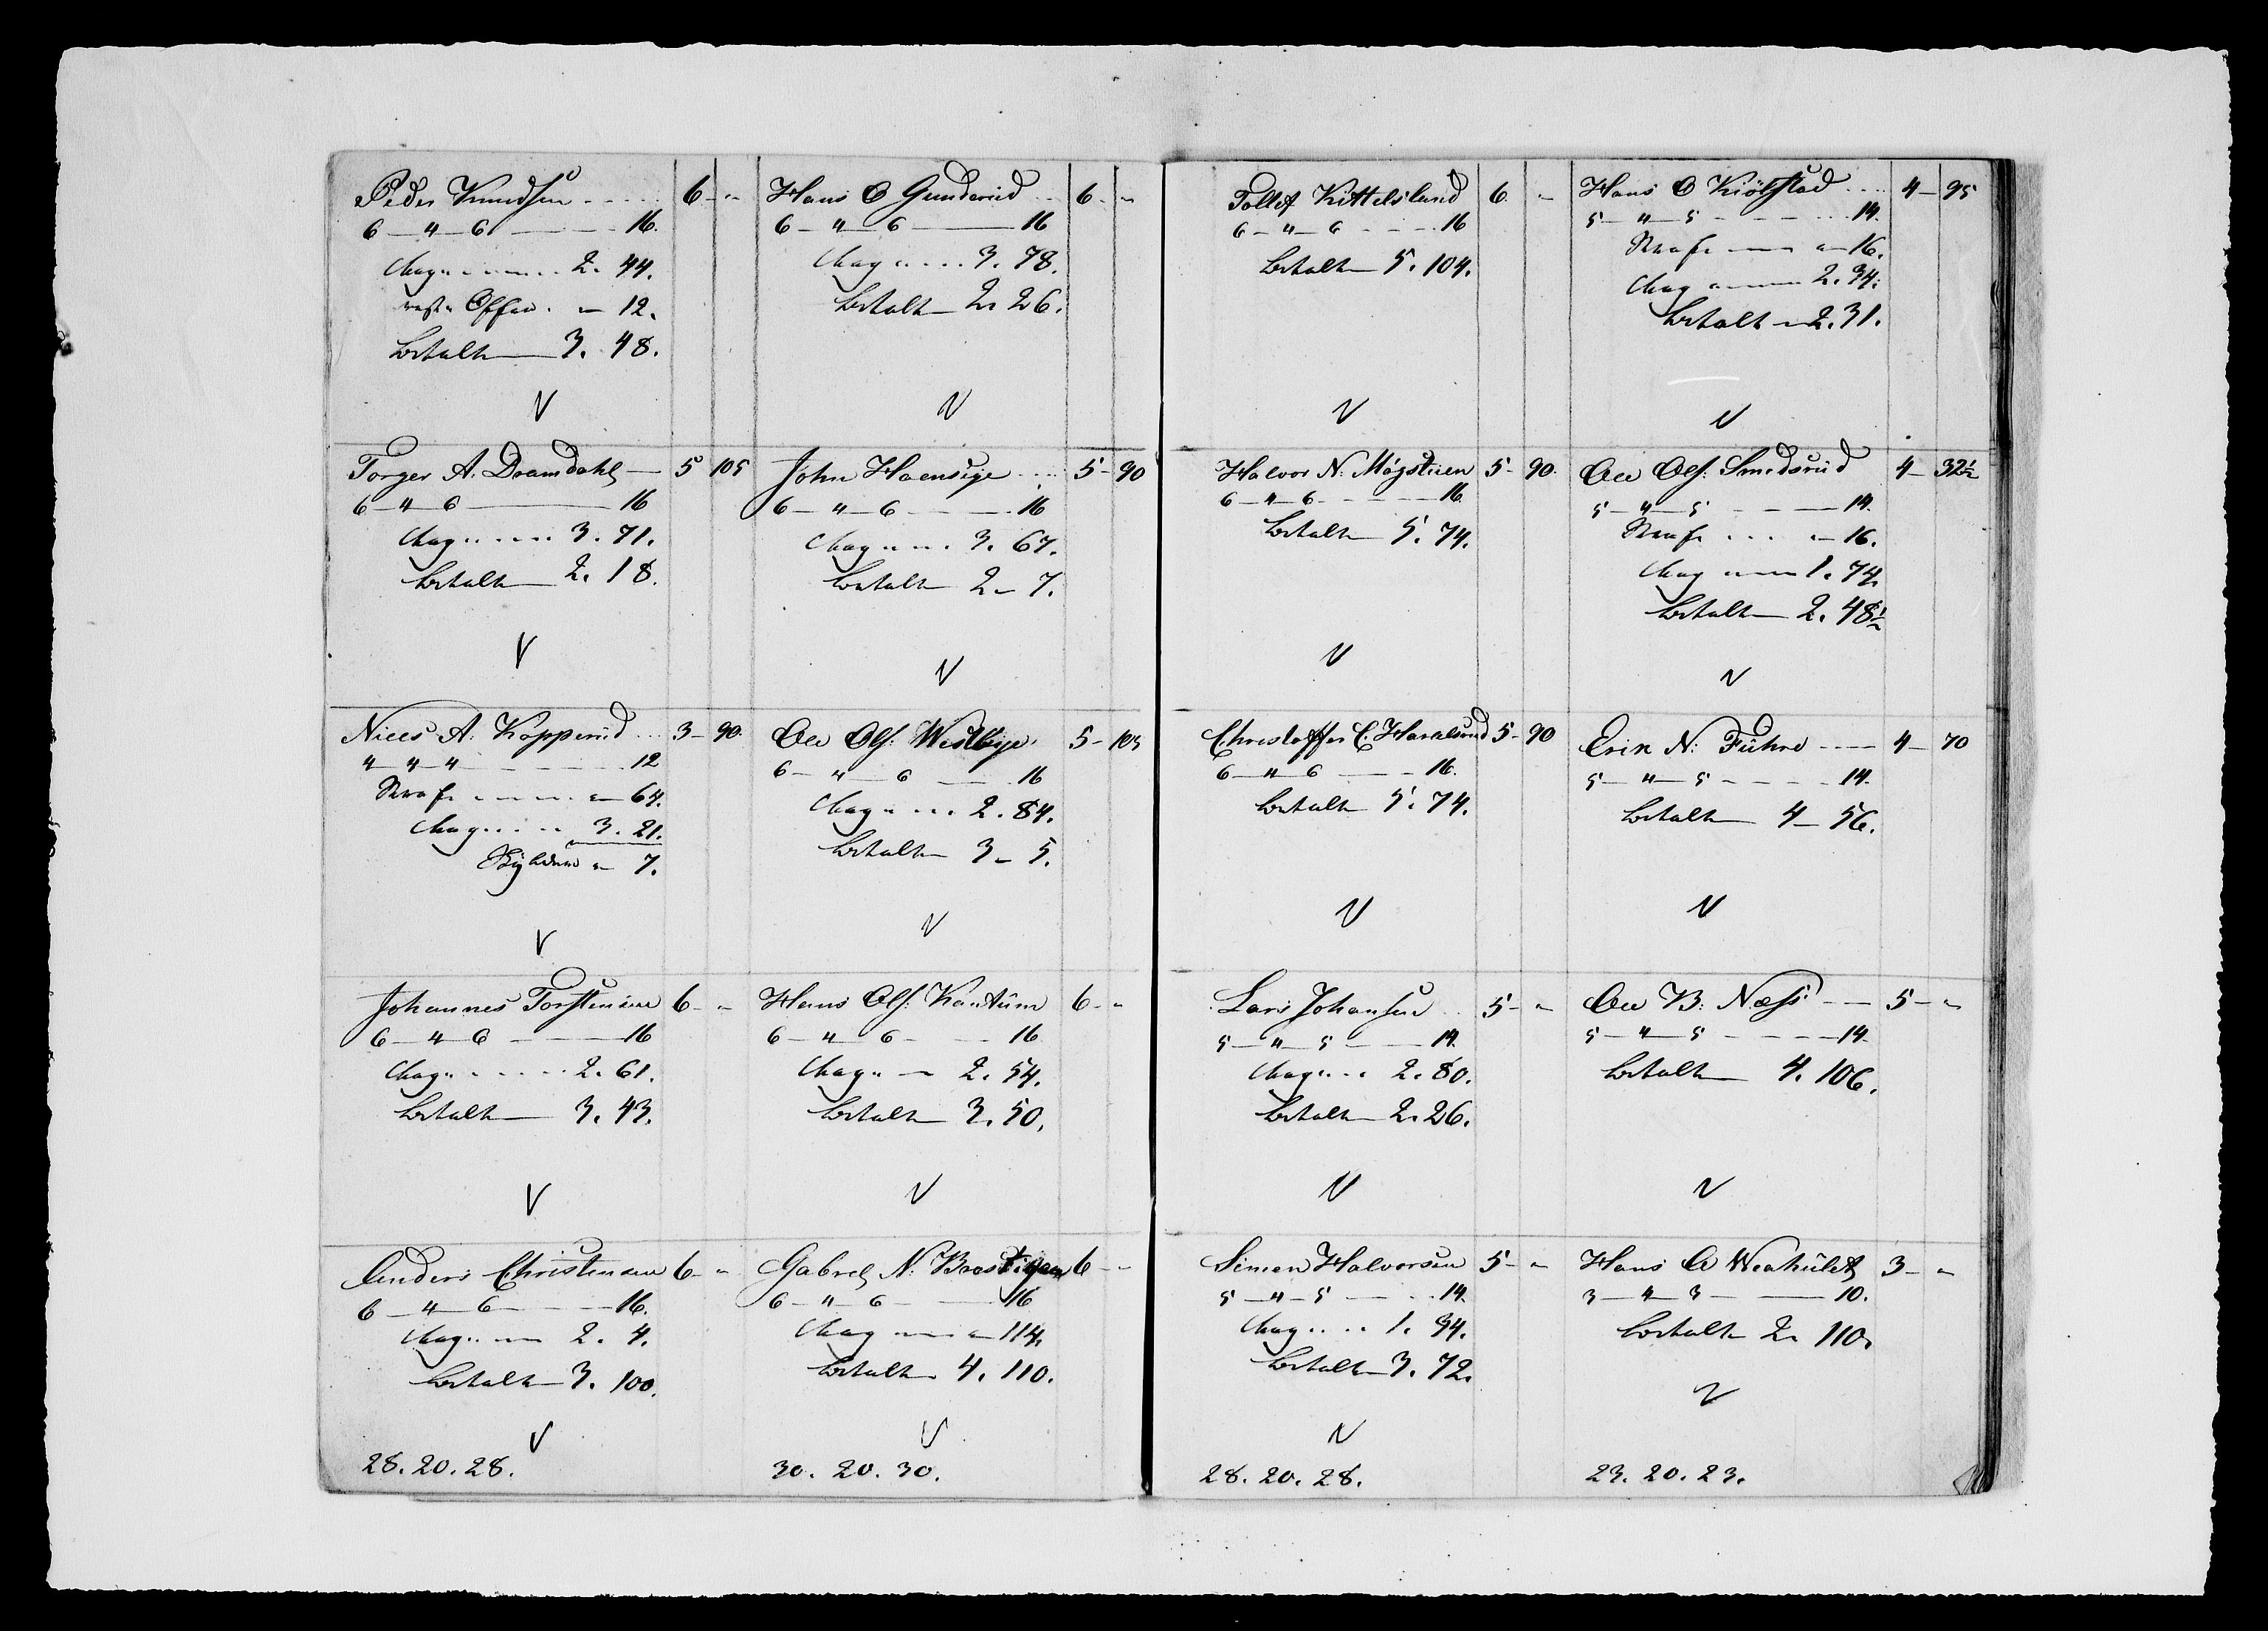 Peder Knudsen ..... 6 - "
6 — 4 — 6 — 16.
Mag ....... 2. 44.
Offer. " 12.
betalt — 3. 48.
V
Torger A. Dramdahl — 5 105
6 — 4 — 6 — 16
Mag ..... 3. 71.
betalt — 2. 18.
V
Niels A. Kopperud ... 3 - 90.
4 — 4 — 4 — 12
Straf ..... " 64.
Mag ..... 3. 21.
7.
V
Johannes Torstensen 6 - "
6 — 4 — 6 — 16
Mag ...... 2. 61.
betalt — 3. 43.
V
Anders Christensen 6 - "
6 — 4 — 6 — 16.
Mag .... 2. 4.
betalt — 3. 100.
V
28. 20. 28.
Hans O Gunderud .. 6 - "
6 — 4 — 6 — 16
Mag ..... 3. 78.
betalt — 2. 26.
V
John Haensye .... 5 - 90
6 — 4 — 6 — 16
Mag .... 3. 67.
betalt 2 — 7.
V
Ole Ols: Westbye. 5 - 105
6 — 4 — 6 — 16
Mag .... 2. 84.
betalt 3 — 5.
V
Hans Ols: Kantum 6 - "
6 — 4 — 6 - 16
Mag .. — 2. 54.
betalt — 3. 50.
V
Gabrel N: Braastigen 6 - "
6 — 4 — 6 — 16
Mag .... " 114.
betalt 4. 110.
V
30. 20. 30.
Tollef Kittelsland 6. "
6 — 4 — 6 - - - 16
betalt — 5. 104.
V
Halvor N: Møjstuen 5 - 90.
6 — 4 — 6 - - - 16.
betalt — 5. 74.
V
Christoffer C. Haralsrud 5 - 90
6 — 4 — 6 — 16.
betalt 5. 74.
V
Lars Johansen .. 5 - "
5 — 4 — 5 — 14.
Mag .... 2. 80.
betalt — 2. 26.
V
Simen Halvorsen 5 - "
5 — 4 — 5 — 14.
Mag .... 1. 34.
betalt — 3. 72.
V
28. 20. 28.
Hans O Kiölstad .... 4 — 95
5 — 4 — 5 - - - 14.
Straf — " 16.
Mag ..... 2. 34.
betalt — 2. 31.
V
Ole Ols: Smedsrud 4 — 32½
5 — 4 — 5 - - — 14.
Straf ... " 16.
Mag .... 1. 74.
betalt — 2. 48½
V
Erik N: Fuhre ---- 4 — 70
5 — 4 — 5 - - - 14.
betalt 4 — 56.
V
Ole B: Næss — 5 - "
5 — 4 — 5 - - - 14.
betalt — 4. 106.
V
Hans A 3 - "
3 — 4 — 3 — 10.
betalt 2. 110.
V
23. 20. 23.